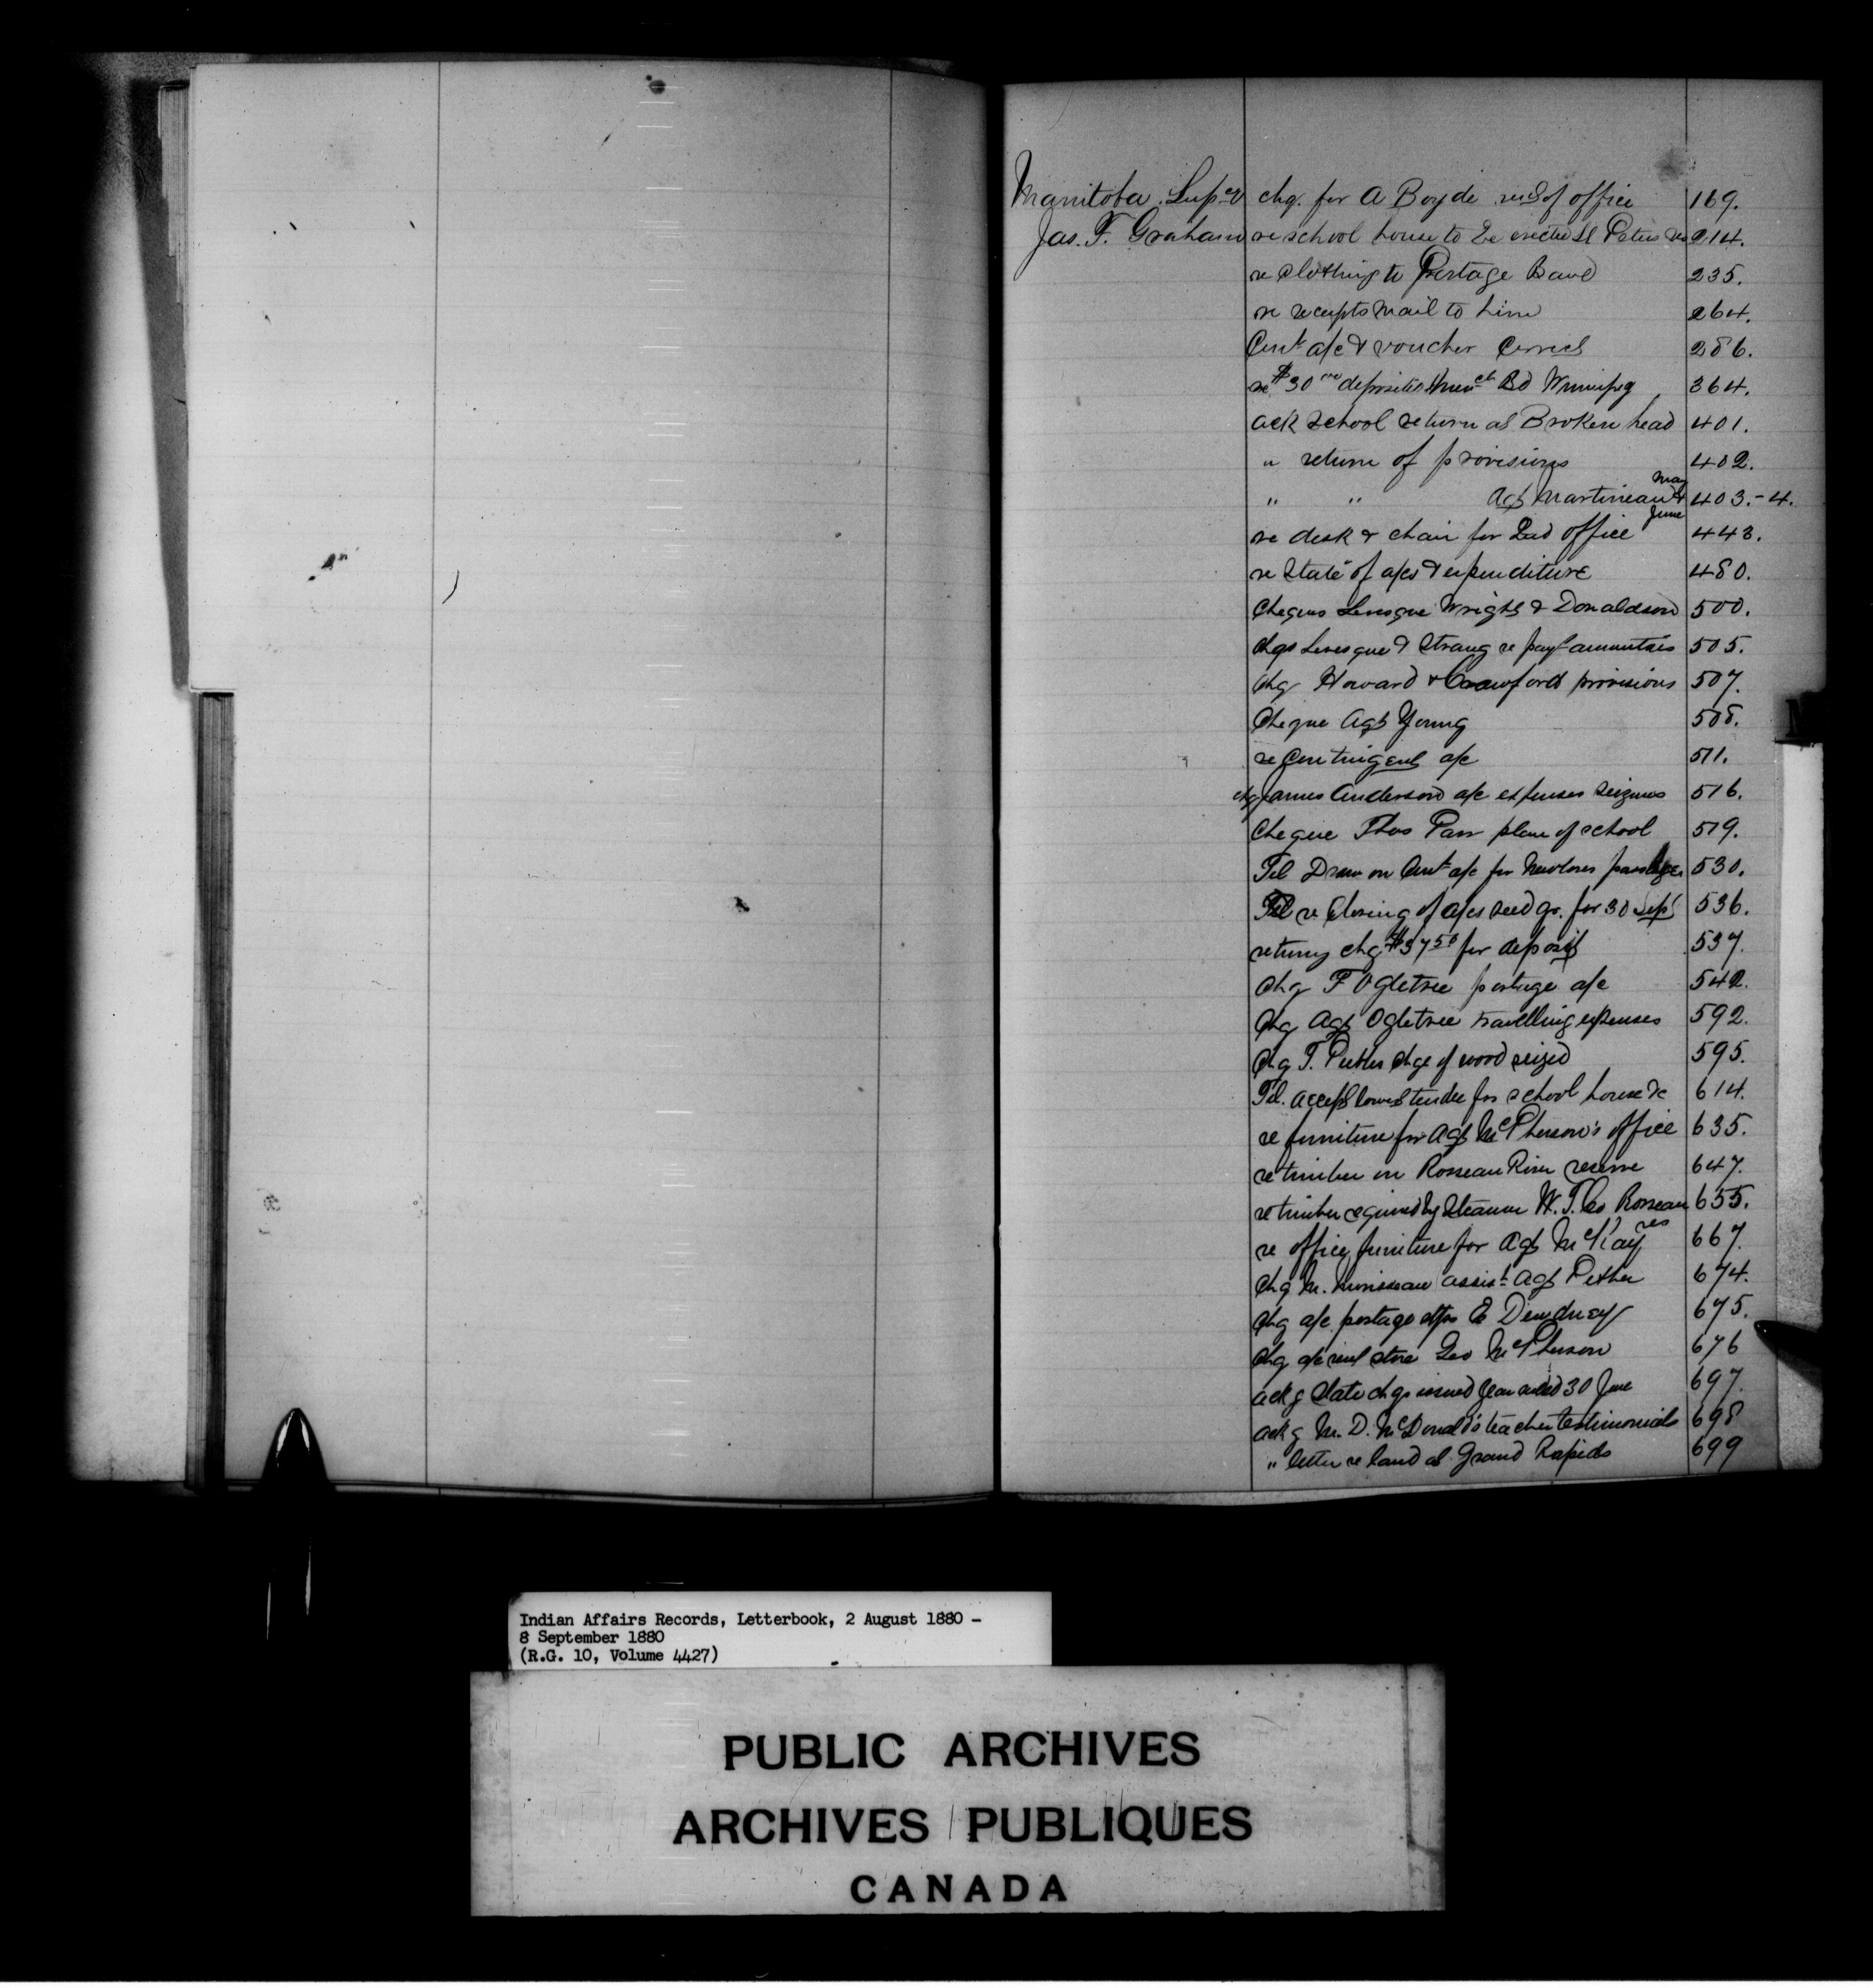 Manitoba Supcy chq. for A Boyde rent of office 169.
Jas. F. Graham re school house to be erected St Peters res 214.
re clothing to Portage Band 235.
re receipts mail to him 264.
Cont a/c & voucher Correct 286.
re $30 00 deposited Merch Bd Winnipeg 364.
ack school return at Broken head 401.
" return of provisions 402.
" " Agt Martineau May & June 403.-4.
re desk & chair for Ind office 443.
re State of a/cs & expenditure 480.
Cheques Levesque Wright & Donaldson 500.
chqs Levesque & Strang re payt annuities 505.
Chq Howard & Crawford provisions 507.
Cheque Agt Young 508.
re Contingent a/c 511.
chq James Anderson a/c expenses seizures 516.
Cheque Thos Parr plan of school 519.
Tel Draw on Cont a/c for Newloves passages 530.
Tel re Closing of a/cs seed gr. for 30 Sept 536.
returng chq $37 50 for deposit 537.
Chq F Ogletree postage a/c 542.
Chq Agt Ogletree travelling expenses 592.
Chq T. Pether chge of wood seized 595.
Tel. accept lowest tender for school house &c 614.
re furniture for Agt McPherson's office 635.
re timber on Rosseau River reserve 647.
re timber required by Steamer W. T. Co Rosseau res 655.
re office furniture for Agt McKay 667.
Chq M. Morisseau assist Agt Pether 674.
Chq a/c postage E Dewdney 675.
Chq a/c rent store Geo McPherson 676
ackg State chqs issued year ended 30 June 697.
ackg M. D. McDonald's teacher testimonials 698
" letter re land at Grand Rapids 699
Indian Affairs Records, Letterbook, 2 August 1880 -
8 September 1880
(R.G. 10, Volume 4427)
PUBLIC ARCHIVES
ARCHIVES PUBLIQUES
CANADA